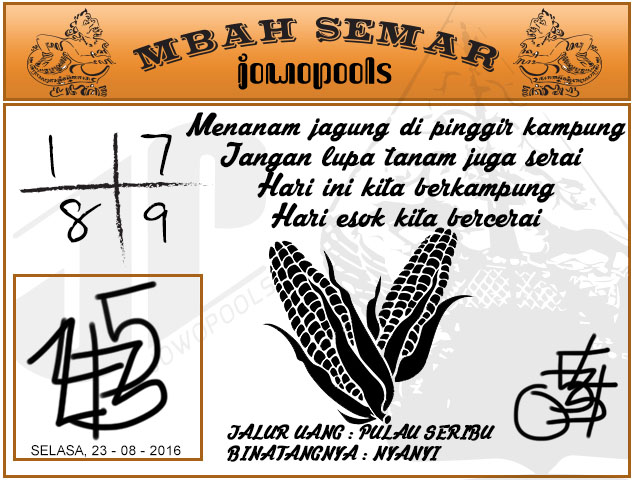 MBAH SEMAR
jowopools
Menanam jagung di pinggir kampung
Jangan lupa tanam juga serai
Hari ini kita berkampung
Hari esok kita bercerai
1 7
8 9
SELASA, 23 - 08 - 2016
JALUR UANG : PULAU SERIBU
BINATANGNYA : NYANYI